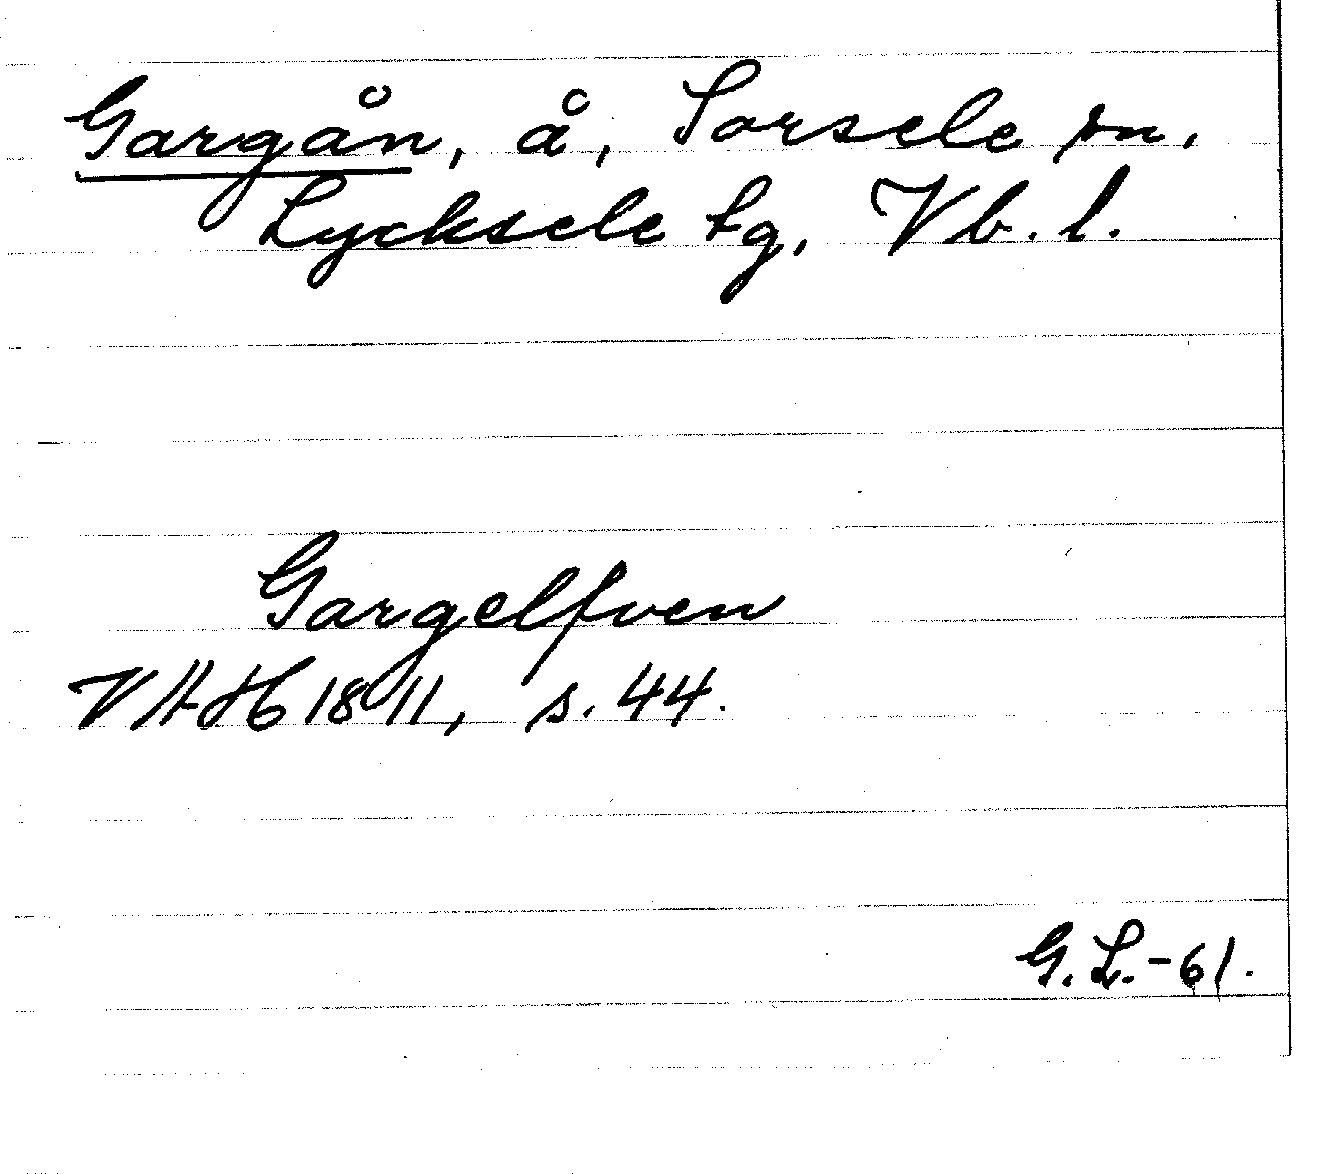 Gargån, å, Sorsele sn,
Lycksele tg, Vb. l.
Gargelfven
VAH 1811, s. 44.
G. L. - 61.